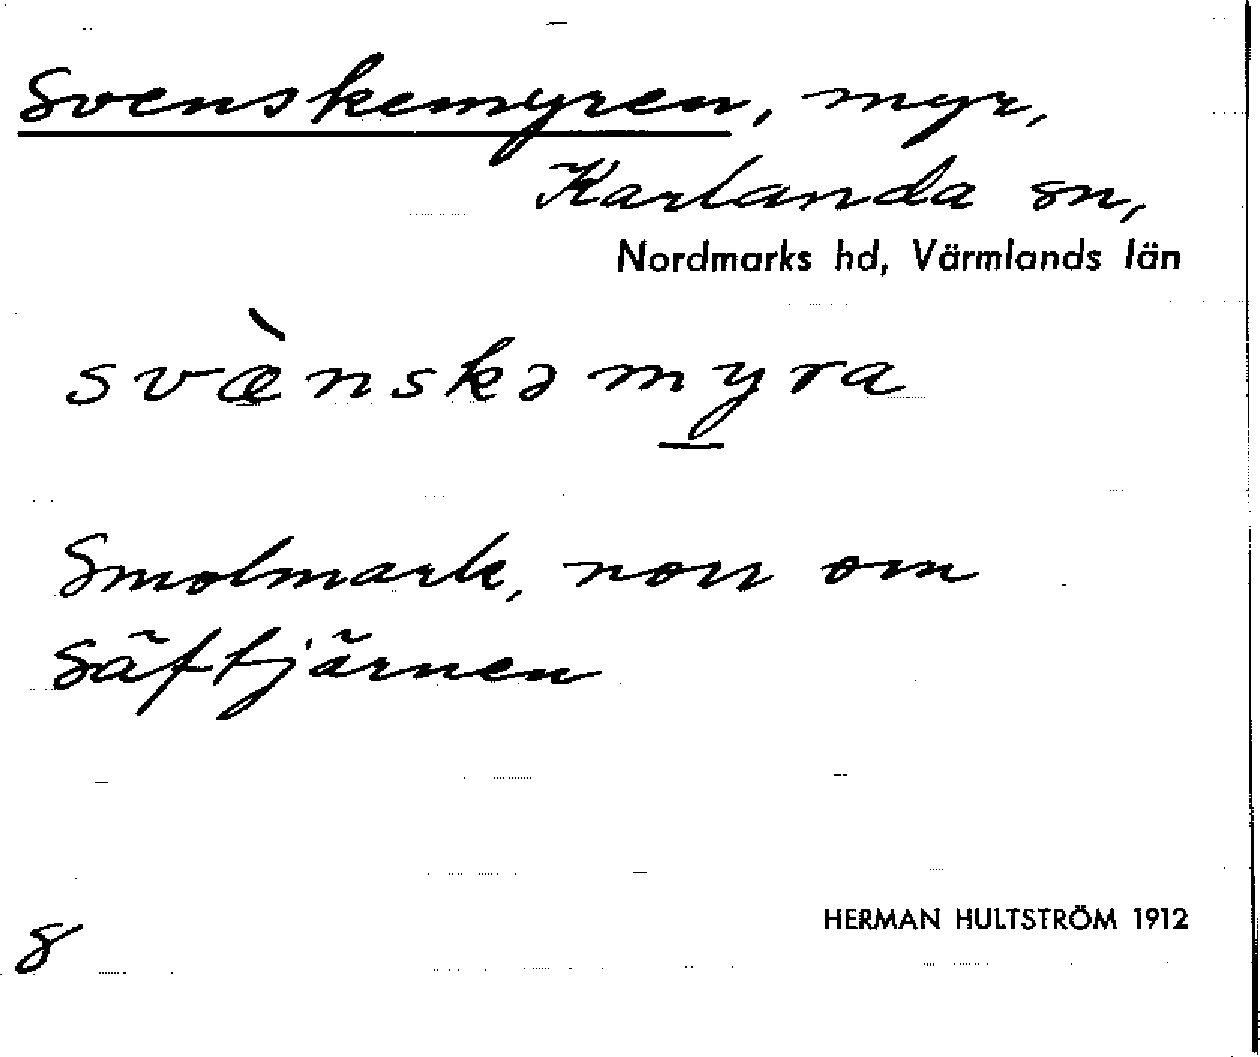 Svenskemyren, myr,
Karlanda sn,
Nordmarks hd, Värmlands län
svæ̀nskəmyra
Smolmark, norr om
Säftjärnen
8
HERMAN HULTSTRÖM 1912